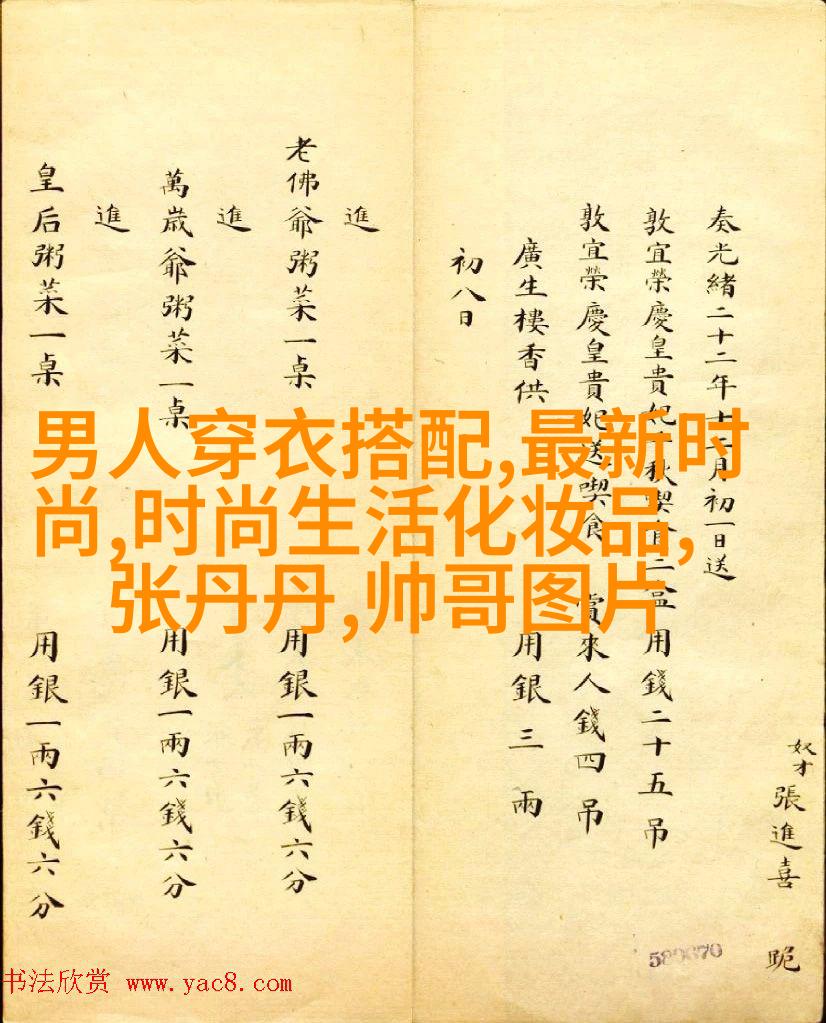 奴才張進喜 跪
奏光緒二十二年十二月初一日送
敦宜榮慶皇貴妃 秋喫食二 用錢二十五吊
敦宜榮慶皇貴妃送喫食 賞來人錢四吊
廣生樓香供 用銀三兩
初八日
進
老佛爺粥菜一桌 用銀一兩六錢六分
進
萬歳爺粥菜一桌 用銀一兩六錢六分
進
皇后粥菜一桌 用銀一兩六錢六分
589670
男人穿衣搭配,最新时
尚,时尚生活化妆品,
张丹丹,帅哥图片
书法欣赏 www.yac8.com